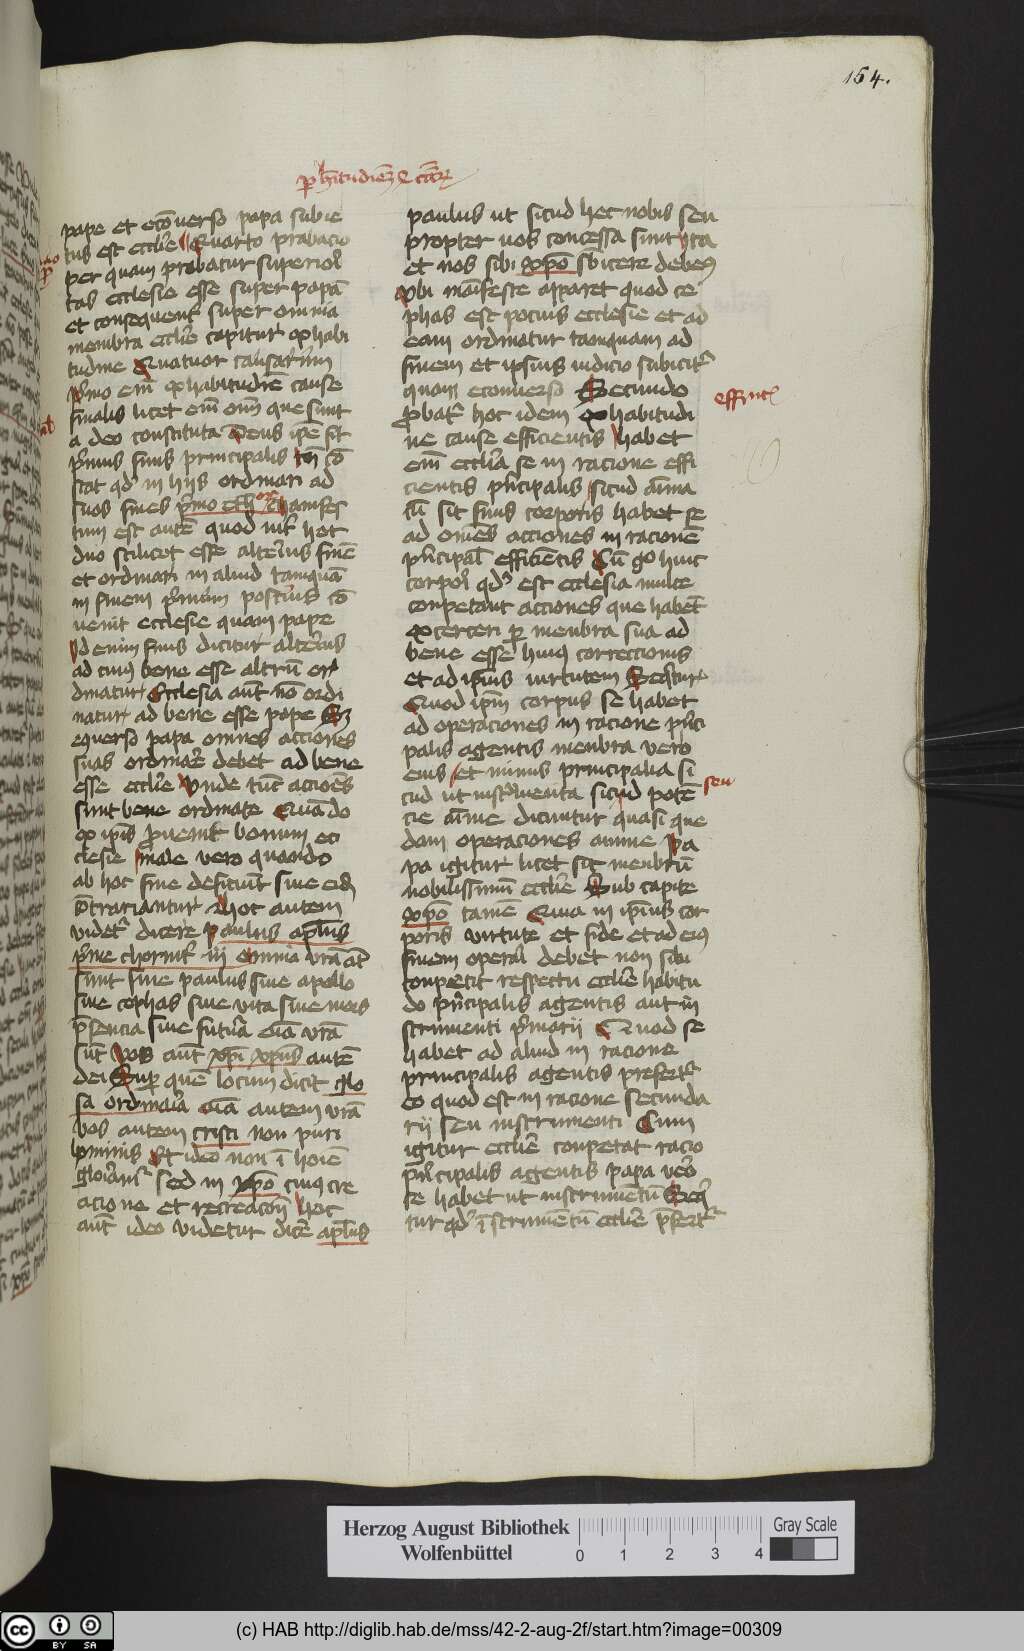 154.
pape et ecōverso papa subie
tus est ecclīe Quarto probacio
per quam probatur superiori
tas ecclesie esse super papā
et consequenter super omnia
membra ecclīe capitur ex habi
tudine Quatuor causarum
p̄mo em̄ ex habitudīe cause
finalis licet em̄ om̄ que sunt
a deo constituta Deus ip̄e sit
p̄mus finis principalis tn̄ cō
stat qd' in hijs ordinari ad
suos fines p̄mo eth' manifes
tum est autē quod int' hec
duo scilicet esse alterius finē
et ordinari in aliud tamquā
in finem p̄mum potius cō
uenit ecclesie quam pape
Id enim finis dicitur alterius
ad cuius bene esse altrū or
dinatur Ecclesia aūt nō ordi
natur ad bene esse pape Sʒ
eqverso papa omnes acciones
suas ordinare debet ad bene
esse ecclīe Unde tūc acciōes
sunt bene ordinate Quādo
ex ip̄is proveniūt bonum ec
clesie male vero quando
ab hoc fine deficiūt sive eidē
cōtrariantur Hoc autem
videtʳ dicere paulus ap̄lus
p̄me chorint' iij omnia vr̄a
sunt sive paulus sive apollo
sive cephas sive vita sive mors
p̄sencia sive futura oīa vr̄a
sūt Vos aūt xp̄i xp̄us autē
dei Super quē locum dicit glo
sa ordinaīa oīa autem vr̄a
vos autem cristi non puri
hominis Et ideo non ī hoīe
gloriamī sed in xp̄o cuius cre
acione et recreacōn Hoc
aūt ideo videtur dicē ap̄lus
paulus ut sicud hec nobis seu
propter vos concessa sunt ita
et nos sibi xp̄o sbicere debeʒ
Ubi manifeste apparet quod ce
phas est pocius ecclesie et ad
eam ordinatur tamquam ad
finem et ipsius iudicio subicitʳ
quam econverso Secundo
probatʳ hoc idem ex habitudi
ne cause efficientis habet
em̄ ecclīa se in racione effi
cientis p̄ncipalis sicud aīma
cū sit finis corporis habet se
ad omēs acciones in racionē
p̄ncipalē efficiētis Cū g° huic
corpori qd' est ecclesia multe
conpetant acciones que habet
exerceri p̱ menbra sua ad
bene esse huius correccionis
et ad ip̄ius virtutem Seq̄tur
Quod ip̄m corpus se habet
ad operaciones in racione p̄nci
palis agentis menbra vero
eius et minus principalia si
cud ut instrumenta sicud potē
cie aīme dicuntur quasi que
dam operaciones anime Pa
pa igitur licet sit menbrū
nobilissimū ecclīe Sub capite
xp̄o tamē Quia in ip̄ius cor
poris virtute et fide et ad eius
finem operari debet non sibi
conpetit respectu ecclīe habitu
do p̄ncipalis agentis aut in
strumenti p̄marij Quod se
habet ad aliud in racione
principalis agentis prefertʳ
eo quod est in racione secunda
rij seu instrumenti Cum
igitur ecclīe conpetat racio
p̄ncipalis agentis papa vero
se habet ut instrumētū Seq̄
tur qd' ī strumētū ecclīe p̄fertʳ
seu
Herzog August Bibliothek
Wolfenbüttel
0 1 2 3 4
Gray Scale
cc BY SA
(c) HAB http://diglib.hab.de/mss/42-2-aug-2f/start.htm?image=00309